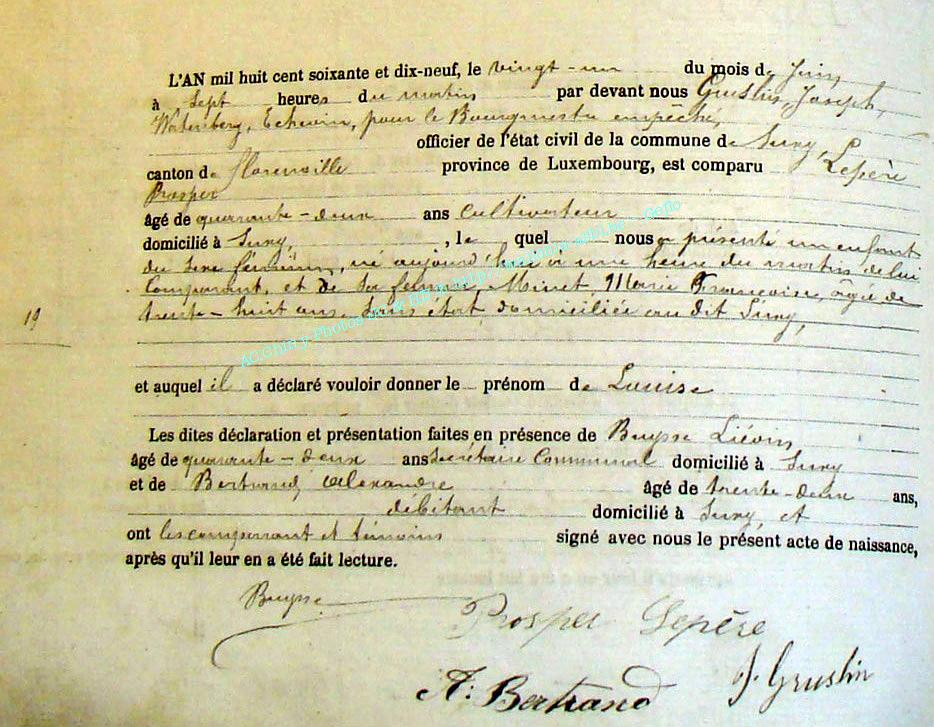 L'AN mil huit cent soixante et dix-neuf, le vingt-un du mois de Juin
à sept heures du matin par devant nous Gruslin, Joseph,
Echevin, pour le Bourgmestre empêché,
officier de l'état civil de la commune de Suxy,
canton de Florenville province de Luxembourg, est comparu Lepère
Prosper
âgé de quarante-deux ans Cultivateur
domicilié à Suxy, , le quel nous a présenté un enfant
du sexe féminin, né aujourd'hui à une heure du matin de lui
Comparant, et de sa femme, Minet, Marie Françoise, âgée de
19 trente-huit ans, sans état, domiciliée au dit Suxy,
et auquel il a déclaré vouloir donner le prénom de Louise
Les dites déclaration et présentation faites en présence de Buysse Liévin,
âgé de quarante-deux ans Secrétaire Communal domicilié à Suxy
et de Bertrand, Alexandre âgé de trente-deux ans,
débitant domicilié à Suxy, et
ont les comparant et témoins signé avec nous le présent acte de naissance,
après qu'il leur en a été fait lecture.
Buysse
Prosper Lepère
A. Bertrand J. Gruslin